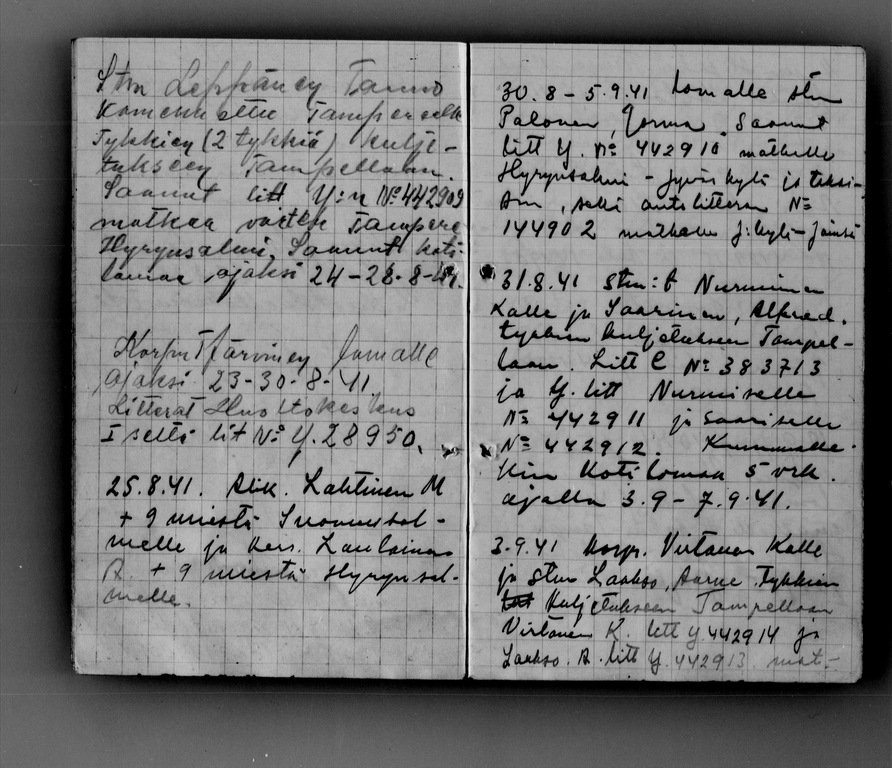 Stm Leppäney Tauno
Komennettu Tamperelle
Tykkiey (2 tykkiä) kulje-
tukseey Tampellaan.
Saanut litt Y:n No 442909
matkaa varten Tampere
Hyrynsalmi. Saanut koti-
lomaa ajaksi 24-28-8-41.
Korpr T Järviney lomalle
ajaksi 23-30-8-41
Litterat Huoltokeskus
I seltä lit No Y. 28950.
25.8.41. Alik. Lahtinen M
+ 9 miestä Suomussal-
melle ja kers. Laulainen
R. + 9 miestä Hyrynsal-
melle.
30.8-5.9.41 lomalle stm
Palonen, Jorma. Saanut
litt Y. No 442910 matkalle
Hyrynsalmi - Jyväskylä ja
sekä No
144902 matkalle J:kylä-Jämsä
31.8.41 Stm:t Nurminen
Kalle ja Saarinen, Alfred.
tykkien kuljetukseen Tampel-
laan. Litt C No 383713
ja Y. litt Nurmiselle
No 442911 ja Saariselle
No 442912. Kummalle-
kin kotilomaa 5 vrk.
ajalla 3.9-7.9.41.
3.9.41 korpr. Virtanen Kalle
ja stm Laakso, Aarne. Tykkien
kuljetukseen Tampellaan
Virtanen K. litt Y. 442914 ja
Laakso. A. litt Y. 442913 mat-